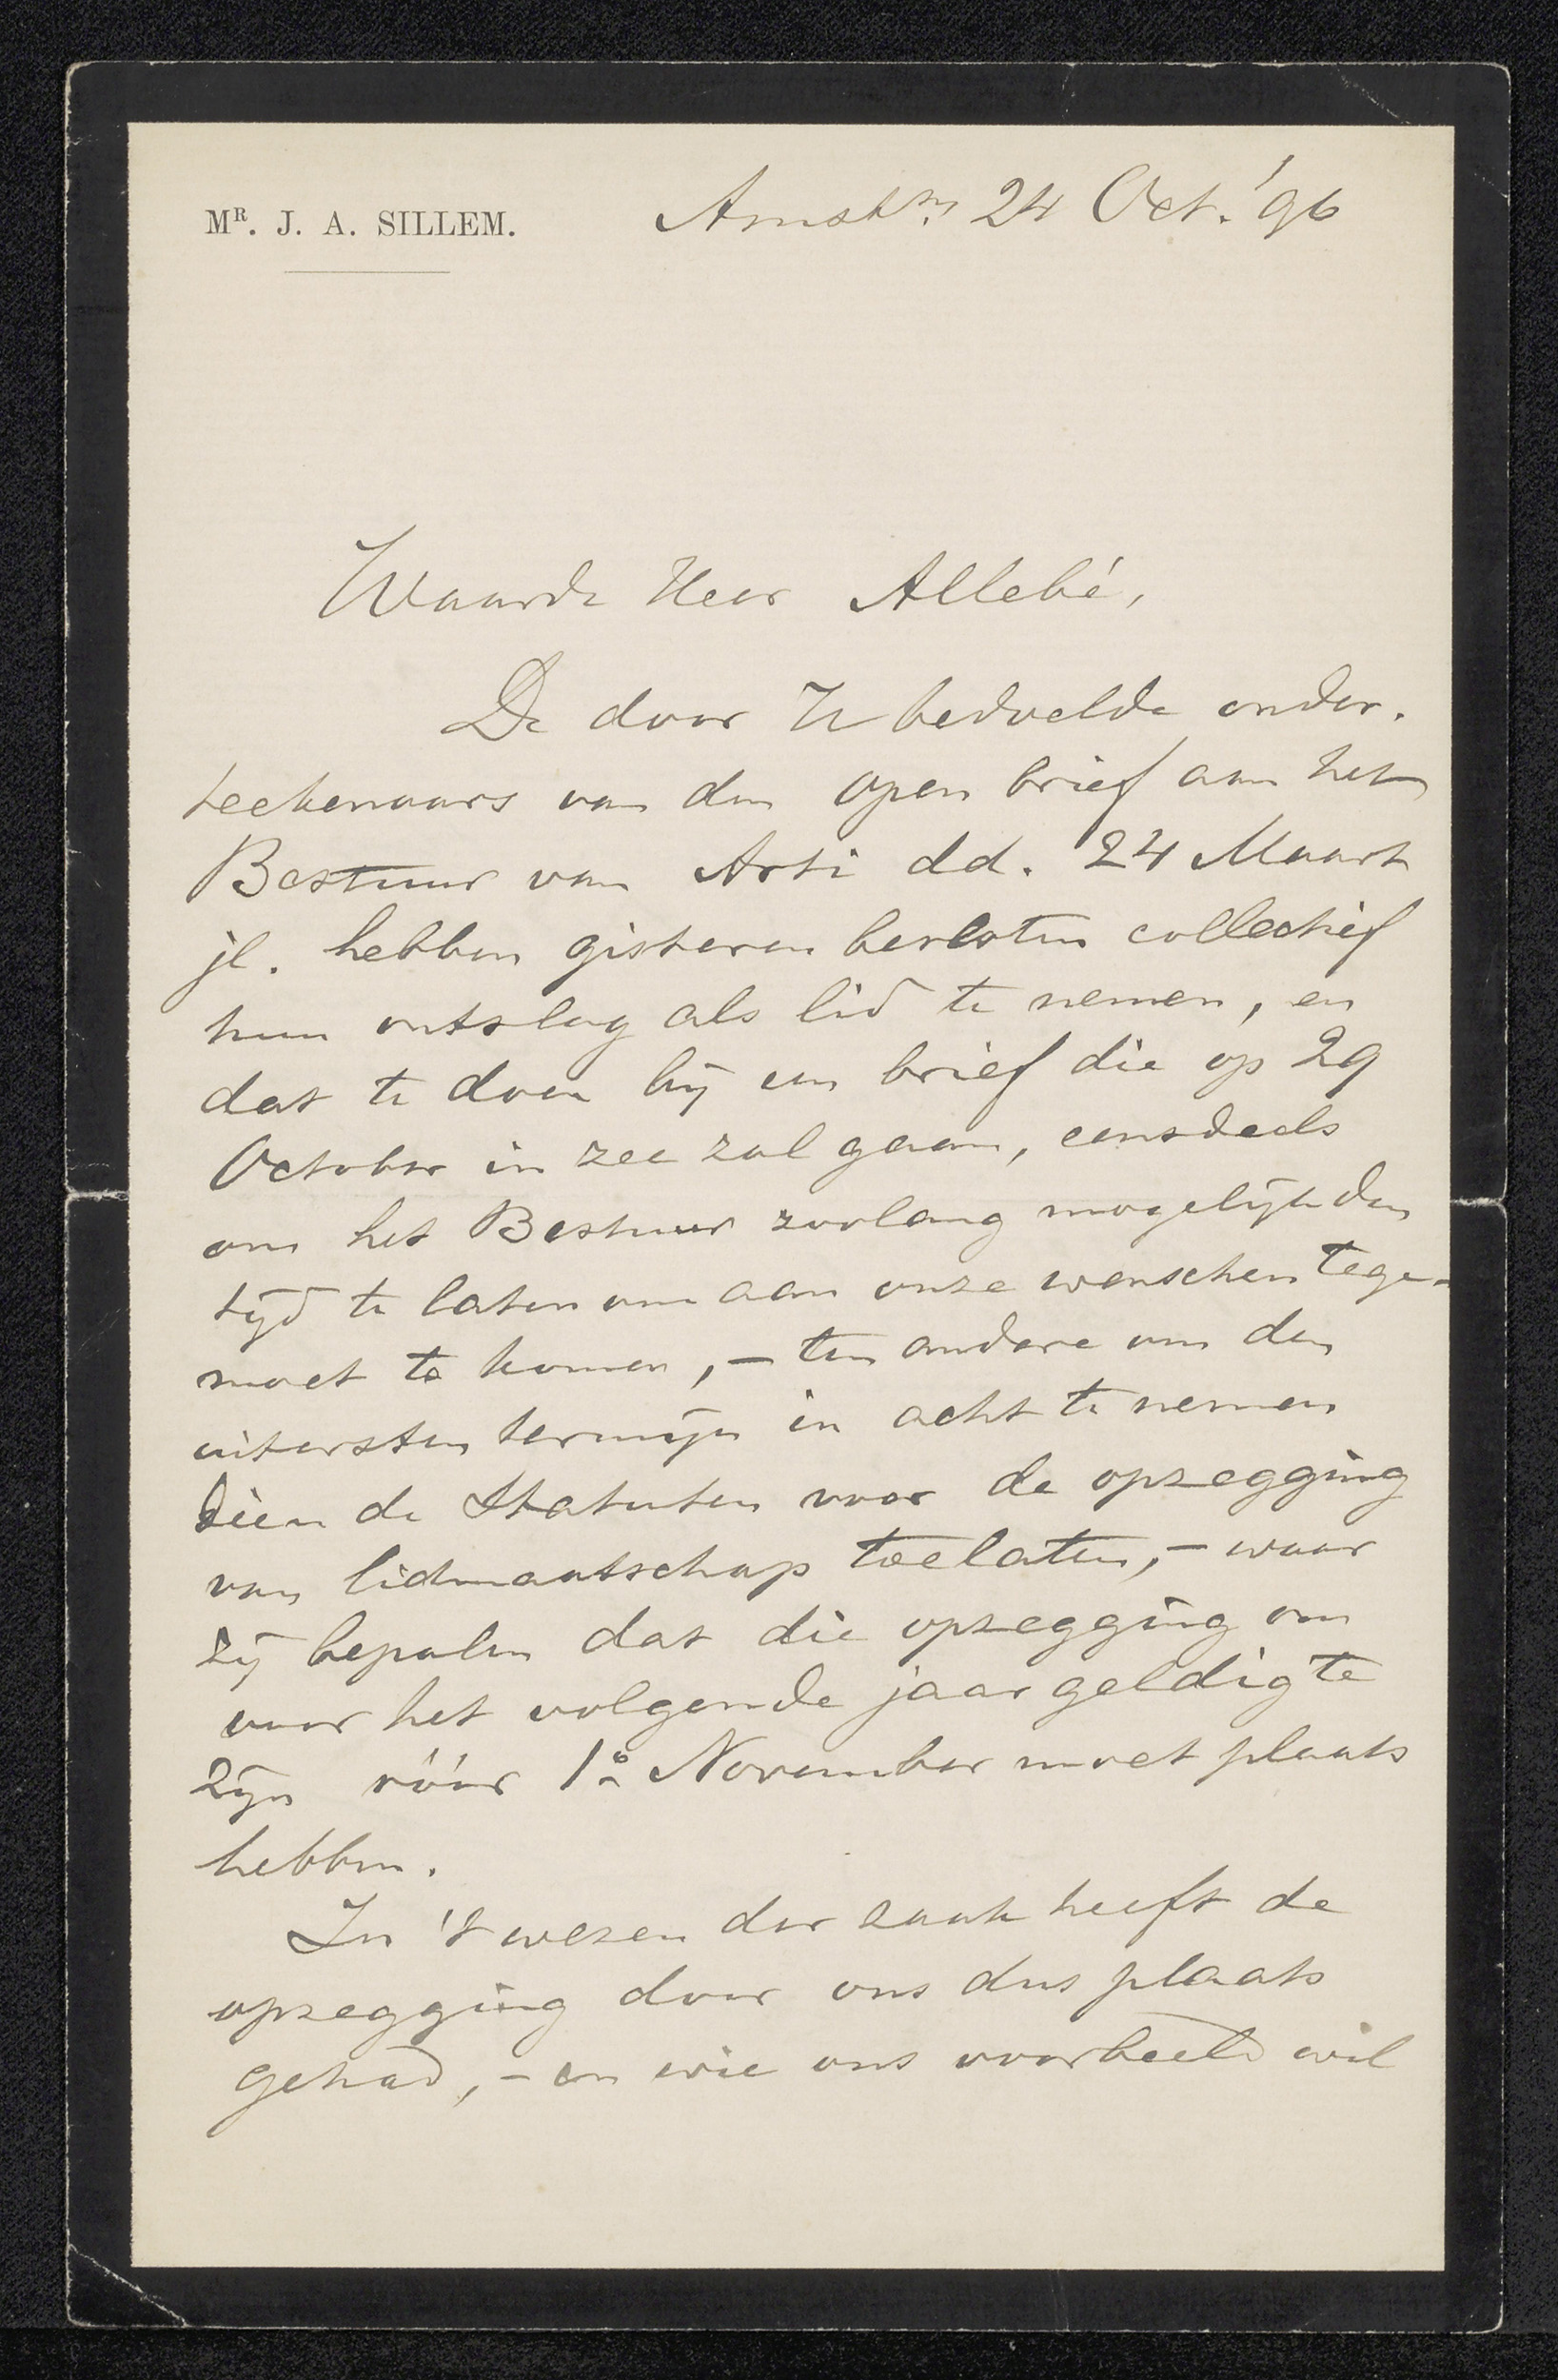 Mʀ. J. A. SILLEM.
Amstm. 24 Oct. '96
Waarde Heer Allebé,
De door U bedoelde onder.
teekenaars van den open brief aan het
Bestuur van Arti dd. 24 Maart
jl. hebben gisteren besloten collectief
hun ontslag als lid te nemen, en
dat te doen bij een brief die op 29
October in zee zal gaan, eensdeels
om het Bestuur zoolang mogelijk den
tijd te laten om aan onze wenschen tege-
moet te komen, – ten andere om den
uitersten termijn in acht te nemen
dien de Statuten voor de opzegging
van lidmaatschap toelaten, – waar
zij bepalen dat die opzegging om
voor het volgende jaar geldig te
zijn vóór 1o November moet plaats
hebben.
In 't wezen der zaak heeft de
opzegging door ons dus plaats
gehad, – en wie ons voorbeeld wil